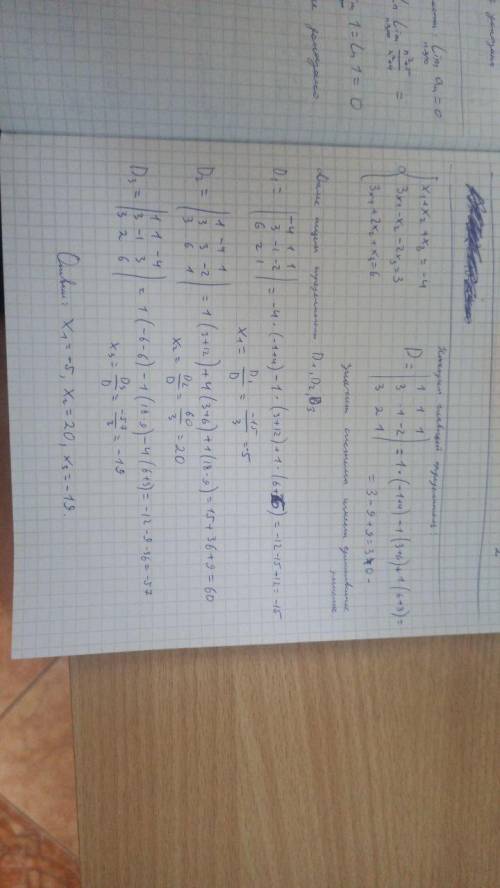 lim an = 0
1 = ln 1 = 0
a) { x₁ + x₂ + x₃ = -4
3x₁ - x₂ - 2x₃ = 3
3x₁ + 2x₂ + x₃ = 6
Находим главный определитель:
D = | 1 1 1 |
| 3 -1 -2 |
| 3 2 1 |
= 1·(-1+4) - 1(3+6) + 1(6+3) =
= 3 - 9 + 9 = 3 ≠ 0 -
значит система имеет единственное
решение
Далее ищем определители D₁, D₂, D₃
D₁ = | -4 1 1 |
| 3 -1 -2 |
| 6 2 1 |
= -4·(-1+4) - 1·(3+12) + 1·(6+6) = -12-15+12 = -15
x₁ = D₁/D = -15/3 = -5
D₂ = | 1 -4 1 |
| 3 3 -2 |
| 3 6 1 |
= 1(3+12) + 4(3+6) + 1(18-9) = 15+36+9 = 60
x₂ = D₂/D = 60/3 = 20
D₃ = | 1 1 -4 |
| 3 -1 3 |
| 3 2 6 |
= 1(-6-6) - 1(18-9) - 4(6+3) = -12-9-36 = -57
x₃ = D₃/D = -57/3 = -19
Ответ: x₁ = -5, x₂ = 20, x₃ = -19.